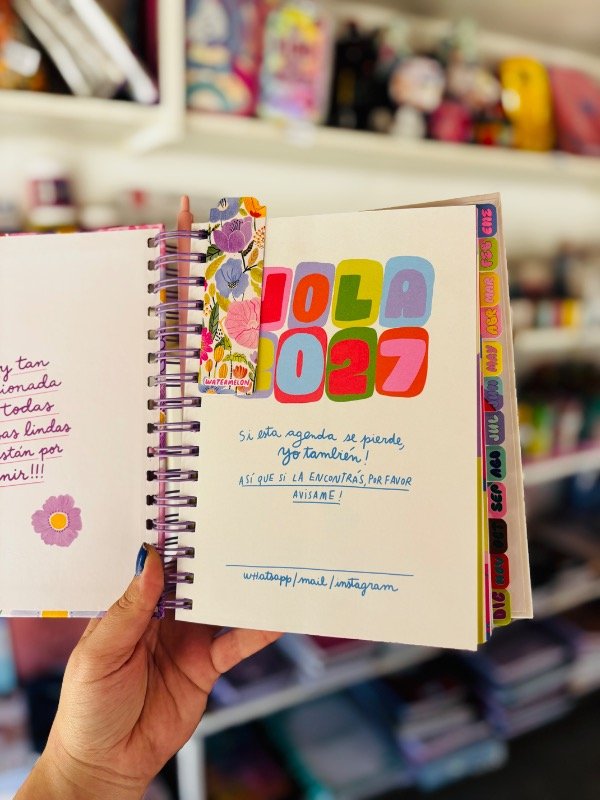 y tan
ionada
todas
as lindas
están por
nir!!!
WATERMELON
HOLA
2027
Si esta agenda se pierde,
yo también!
ASÍ QUE SI LA ENCONTRÁS, POR FAVOR
AVISAME!
whatsapp/mail/instagram
ENE
FEB
MAR
ABR
MAY
JUN
JUL
AGO
SEP
OCT
NOV
DIC